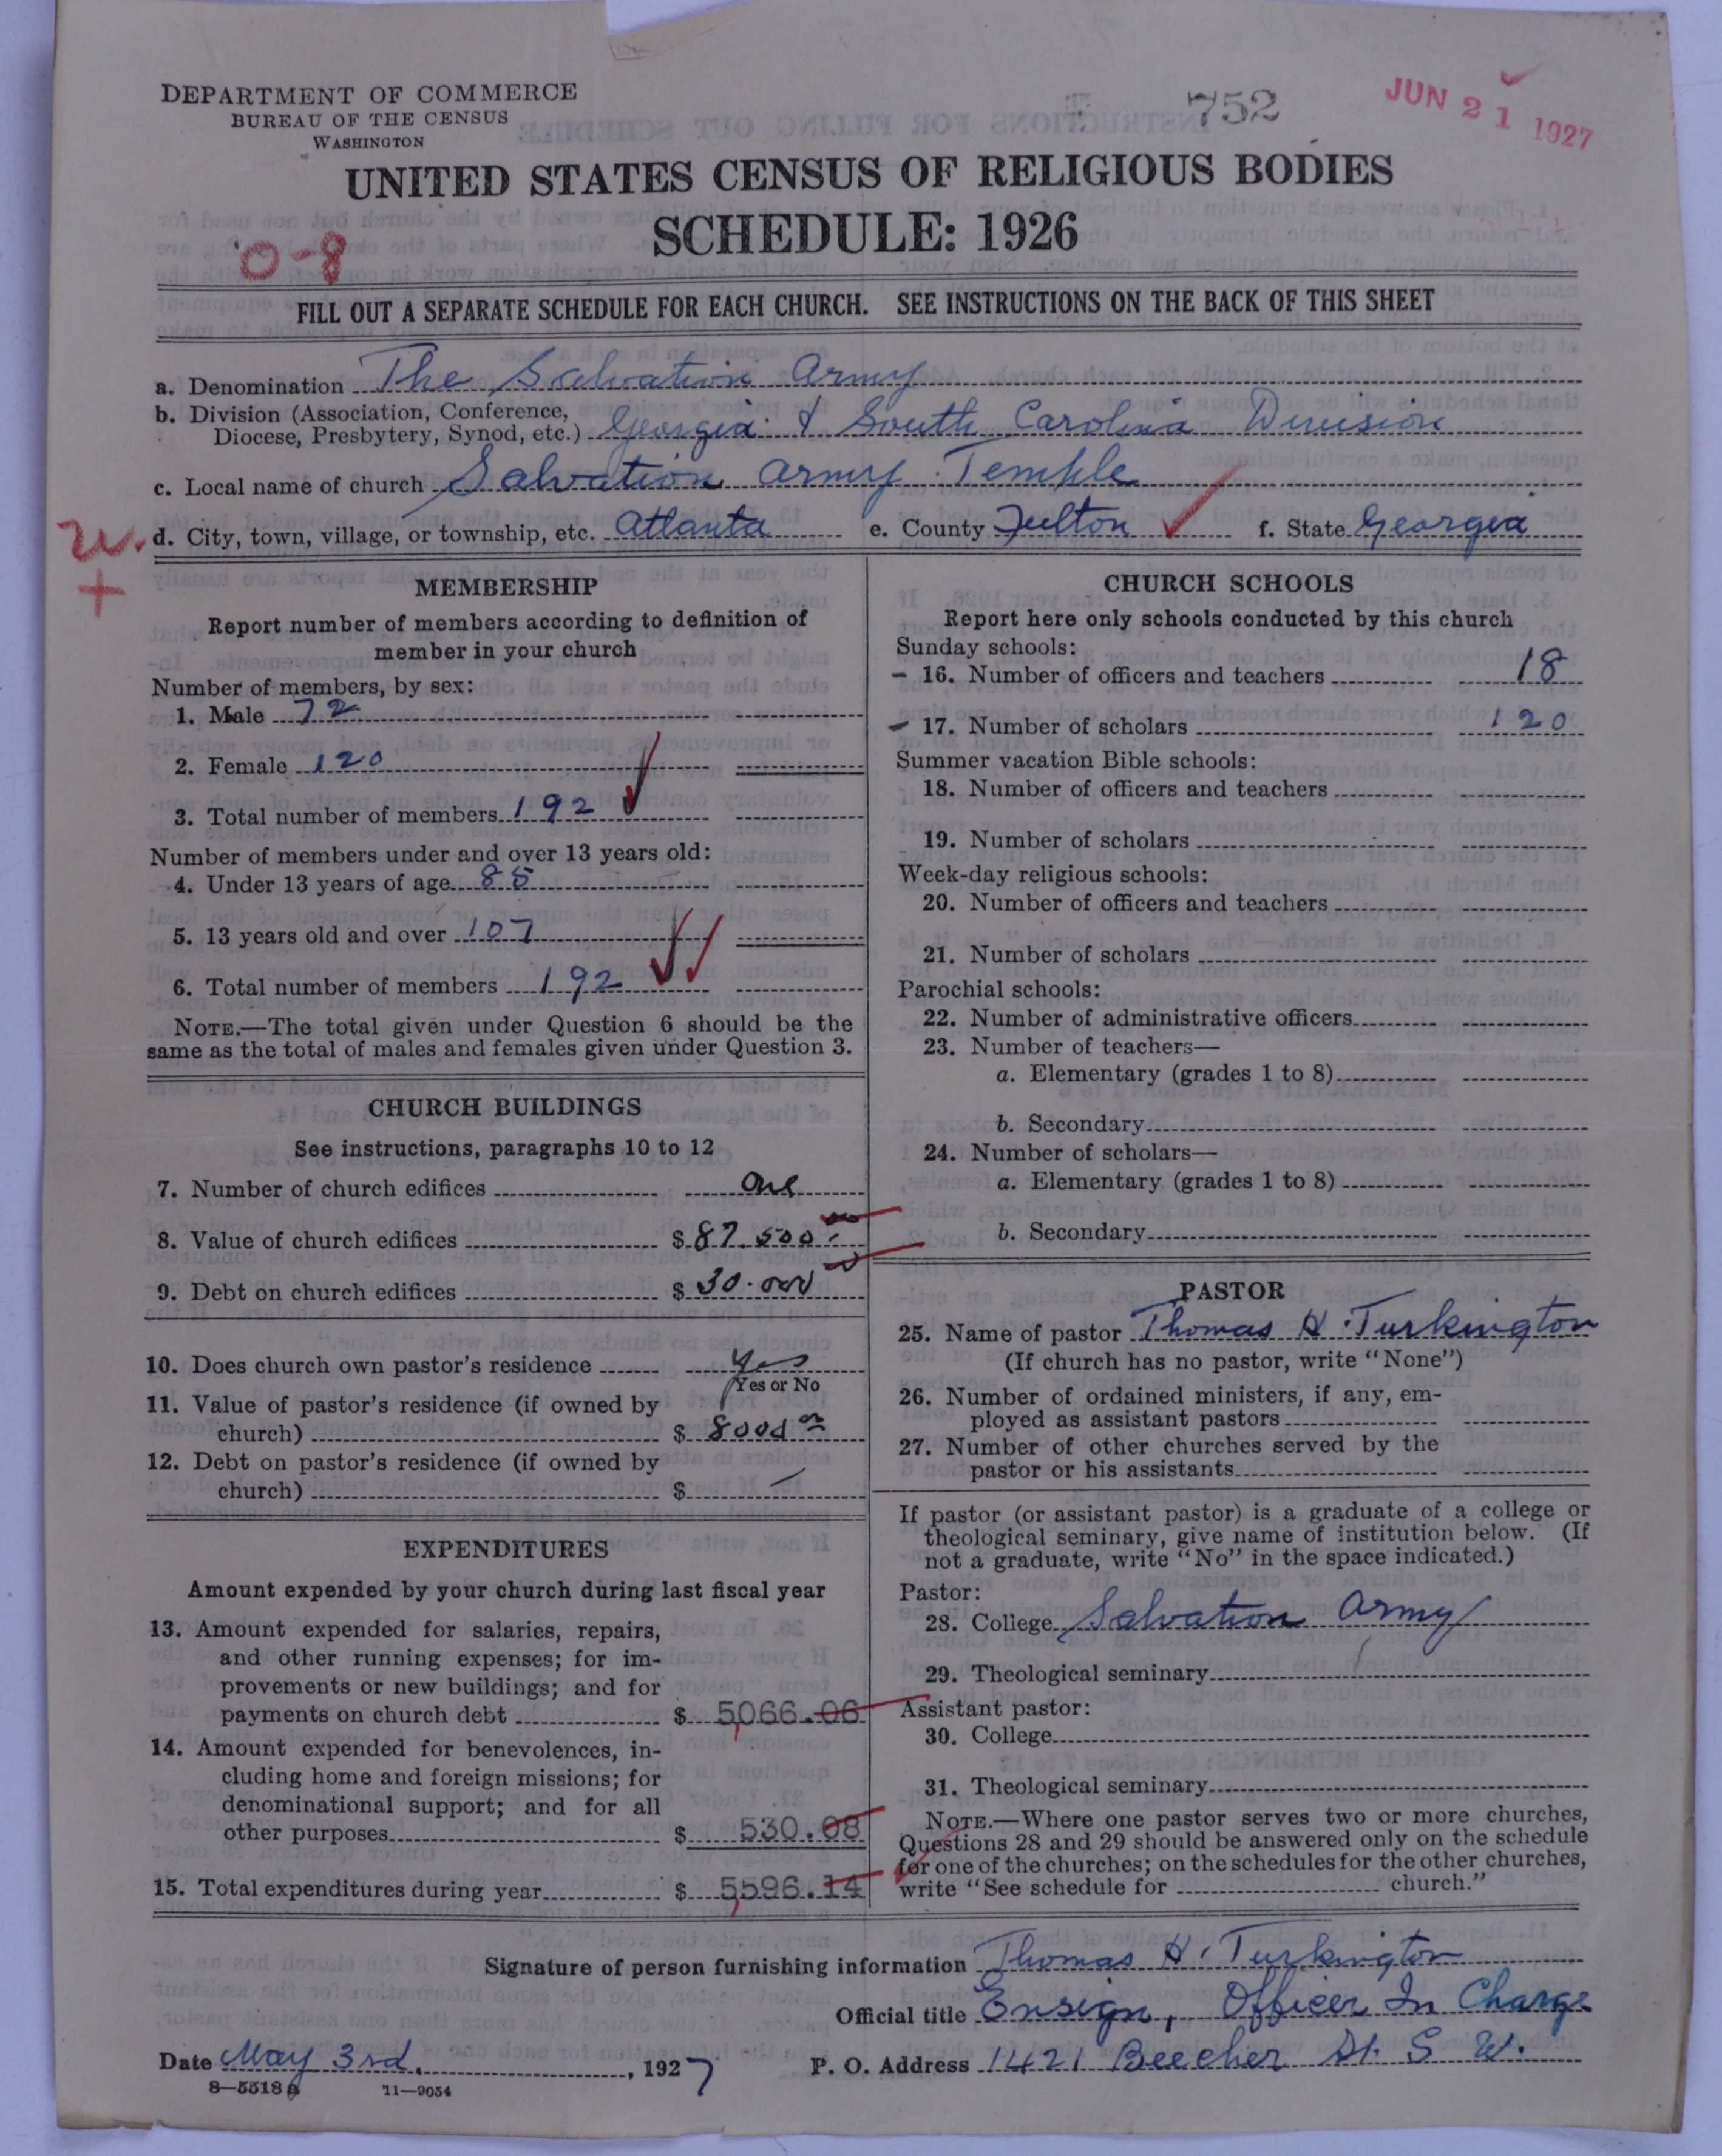 DEPARTMENT OF COMMERCE
BUREAU OF THE CENSUS
WASHINGTON
752
JUN 21 1927
UNITED STATES CENSUS OF RELIGIOUS BODIES
SCHEDULE: 1926
O-8
FILL OUT A SEPARATE SCHEDULE FOR EACH CHURCH. SEE INSTRUCTIONS ON THE BACK OF THIS SHEET
a. Denomination The Salvation Army
b. Division (Association, Conference,
Diocese, Presbytery, Synod, etc.) Georgia & South Carolina Division
c. Local name of church Salvation Army Temple
d. City, town, village, or township, etc. Atlanta e. County Fulton f. State Georgia
MEMBERSHIP
Report number of members according to definition of
member in your church
Number of members, by sex:
1. Male 72
2. Female 120
3. Total number of members 192
Number of members under and over 13 years old:
4. Under 13 years of age 85
5. 13 years old and over 107
6. Total number of members 192
NOTE.—The total given under Question 6 should be the
same as the total of males and females given under Question 3.
CHURCH BUILDINGS
See instructions, paragraphs 10 to 12
7. Number of church edifices One
8. Value of church edifices $ 87.500
9. Debt on church edifices $ 30.000
10. Does church own pastor's residence Yes
Yes or No
11. Value of pastor's residence (if owned by
church) $ 8000
12. Debt on pastor's residence (if owned by
church) $ —
EXPENDITURES
Amount expended by your church during last fiscal year
13. Amount expended for salaries, repairs,
and other running expenses; for im-
provements or new buildings; and for
payments on church debt $ 5,066.06
14. Amount expended for benevolences, in-
cluding home and foreign missions; for
denominational support; and for all
other purposes $ 530.08
15. Total expenditures during year $ 5,596.14
CHURCH SCHOOLS
Report here only schools conducted by this church
Sunday schools:
16. Number of officers and teachers 18
17. Number of scholars 120
Summer vacation Bible schools:
18. Number of officers and teachers
19. Number of scholars
Week-day religious schools:
20. Number of officers and teachers
21. Number of scholars
Parochial schools:
22. Number of administrative officers
23. Number of teachers—
a. Elementary (grades 1 to 8)
b. Secondary
24. Number of scholars—
a. Elementary (grades 1 to 8)
b. Secondary
PASTOR
25. Name of pastor Thomas H. Turkington
(If church has no pastor, write "None")
26. Number of ordained ministers, if any, em-
ployed as assistant pastors
27. Number of other churches served by the
pastor or his assistants
If pastor (or assistant pastor) is a graduate of a college or
theological seminary, give name of institution below. (If
not a graduate, write "No" in the space indicated.)
Pastor:
28. College Salvation Army
29. Theological seminary
Assistant pastor:
30. College
31. Theological seminary
NOTE.—Where one pastor serves two or more churches,
Questions 28 and 29 should be answered only on the schedule
for one of the churches; on the schedules for the other churches,
write "See schedule for church."
Signature of person furnishing information Thomas H. Turkington
Official title Ensign, Officer In Charge
Date May 3rd, 1927 P. O. Address 1421 Beecher St. S W.
8—5518 a 11—9054